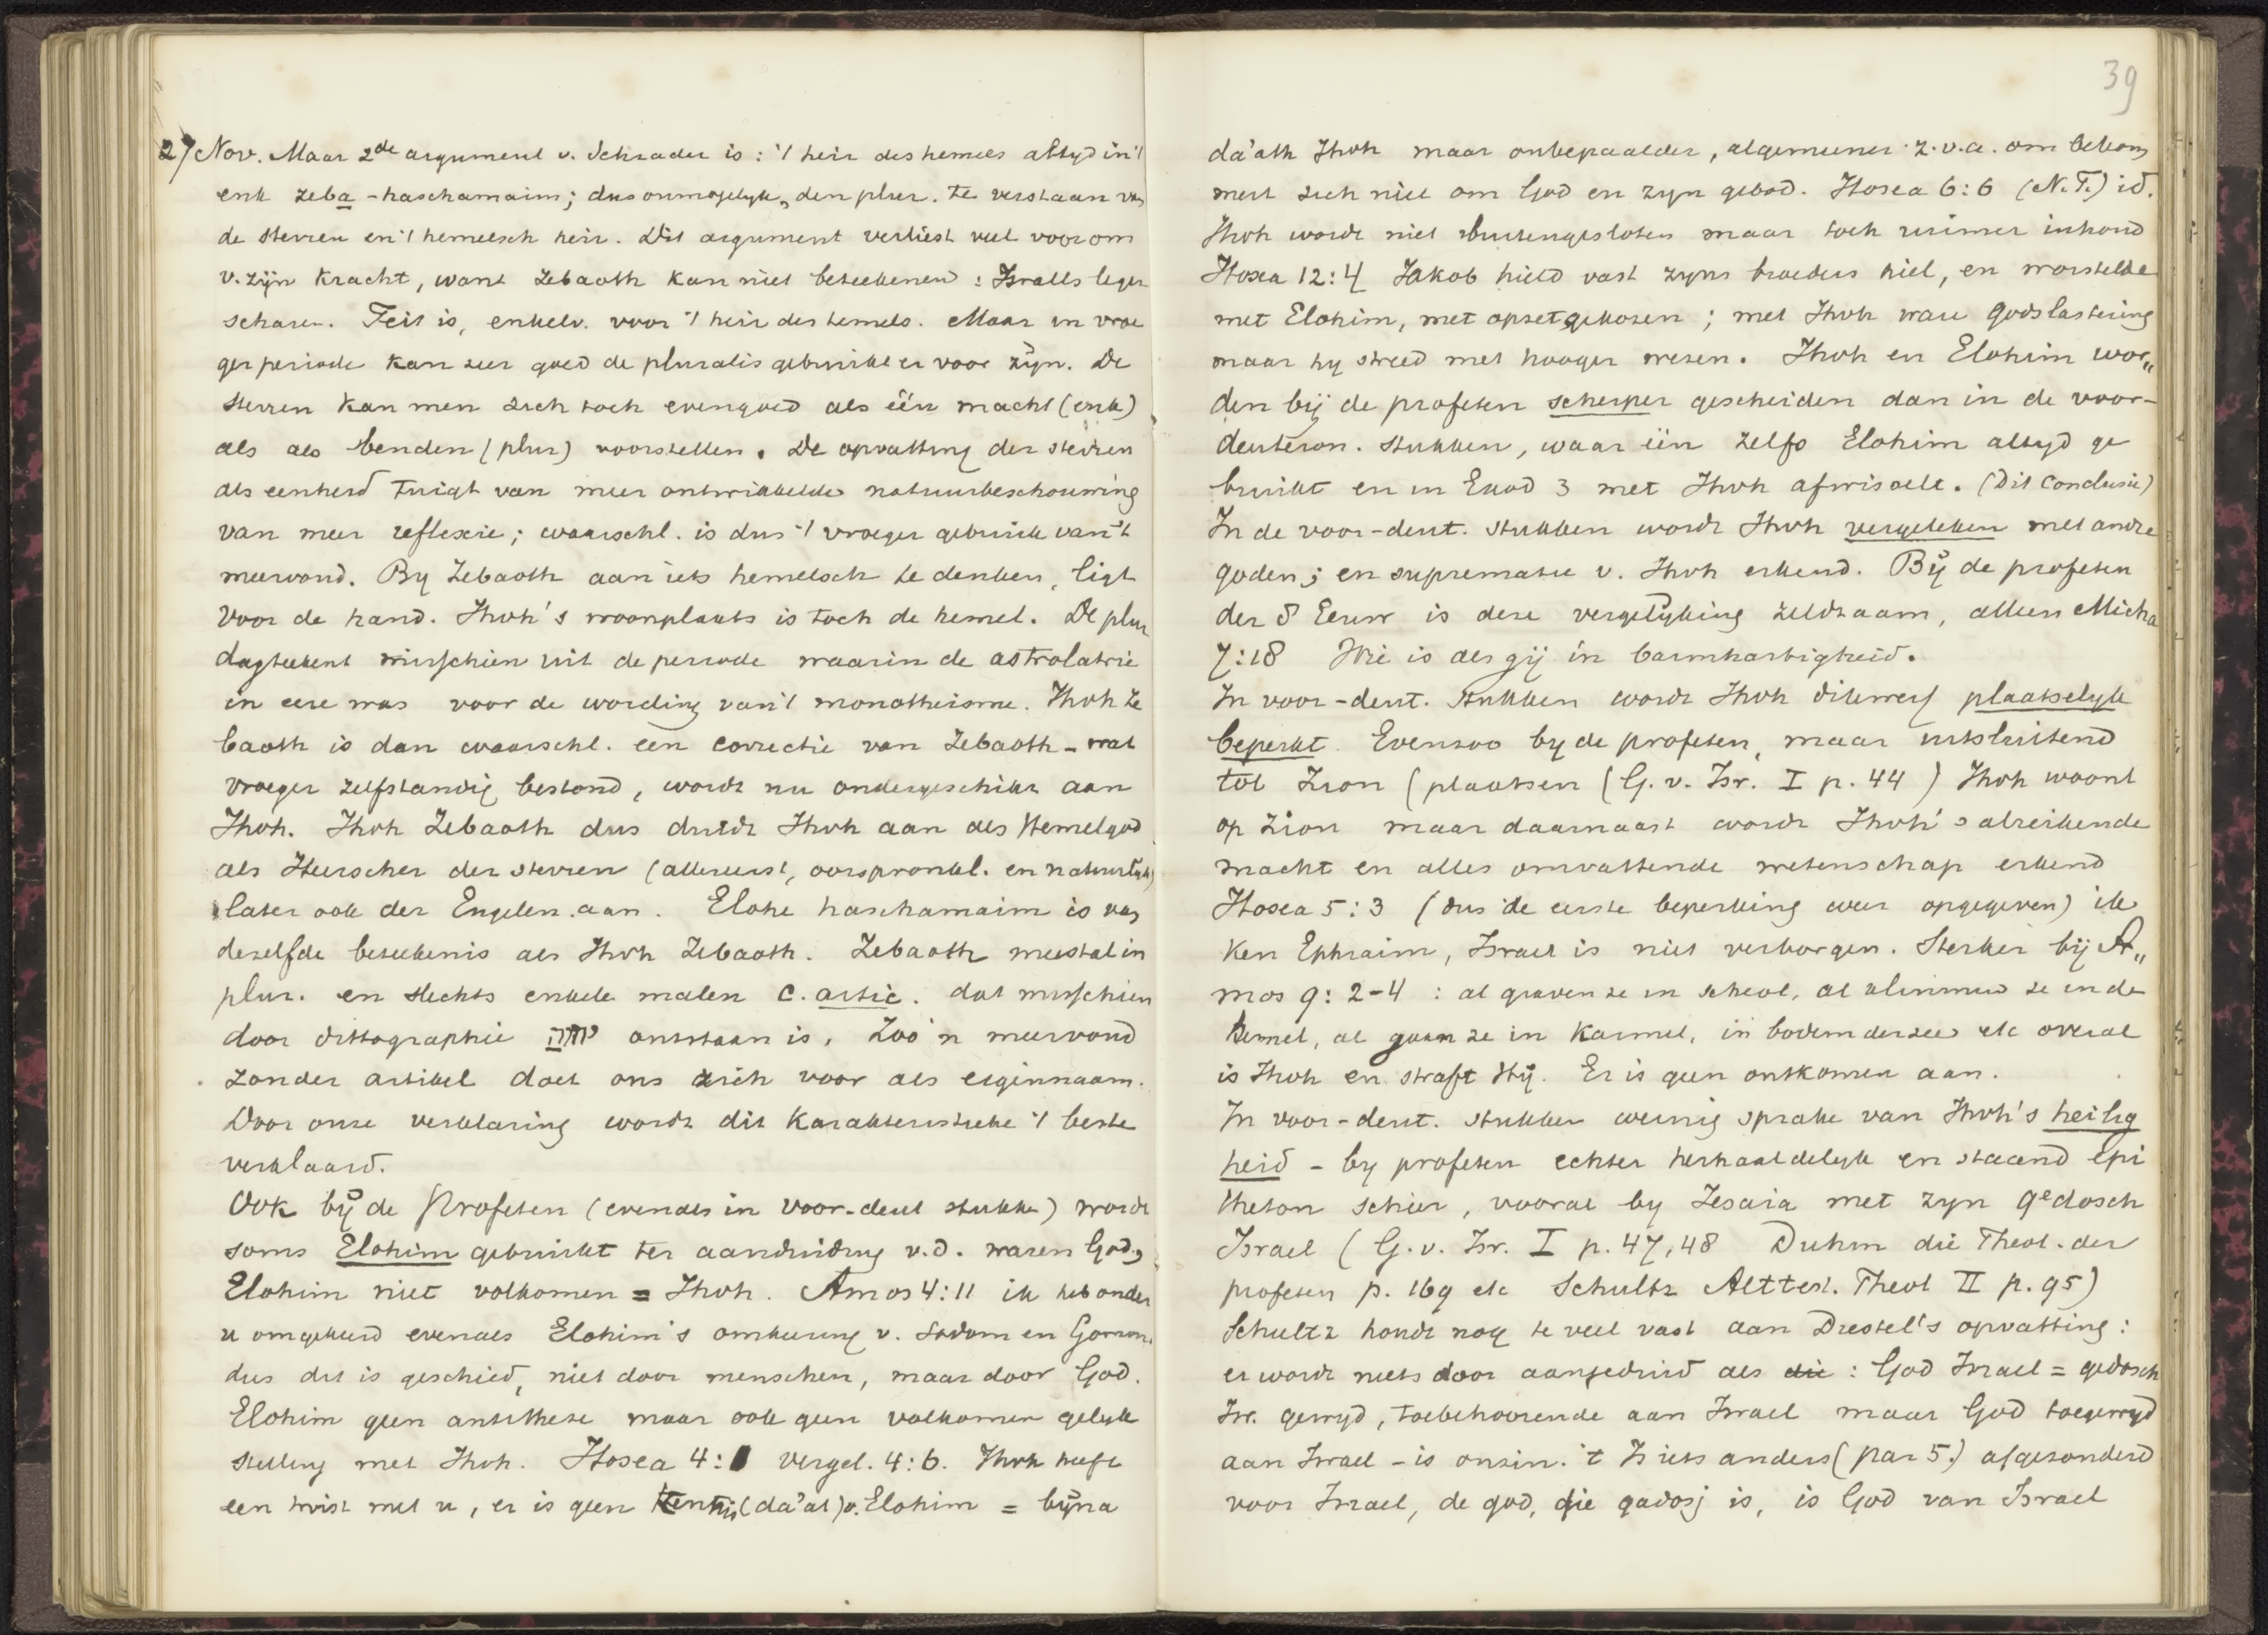 27 Nov. Maar 2de argument v. Schrader is: 't heir des hemels altyd in 't
enk zeba-haschamaim; dus onmogelyk, den plur. te verstaan van
de sterren en 't hemelsch heir. Dit argument verliest veel voor ons
v. zijn kracht, want Zebaoth kan niet beteekenen: Israels leger
scharen. Feit is, enkelv. voor 't heir des hemels. Maar in vroe
ger periode kan zeer goed de pluralis gebruikt er voor zijn. De
sterren kan men zich toch evengoed als één macht (enk)
als als benden (plur) voorstellen. De opvatting der sterren
als eenheid tuigt van meer ontwikkelde natuurbeschouwing
van meer reflexie; waarschl. is dus 't vroeger gebruik van 't
meervoud. By Zebaoth aan iets hemelsch te denken, ligt
voor de hand. Jhvh's woonplaats is toch de hemel. De plur
dagteekent misschien uit de periode waarin de astrolatrie
in eere was voor de wording van 't monotheisme. Jhvh Ze
baoth is dan waarschl. een correctie van Zebaoth - wat
vroeger zelfstandig bestond, wordt nu ondergeschikt aan
Jhvh. Jhvh Zebaoth dus duidt Jhvh aan als Hemelgod
als Heerscher der sterren (allereerst, oorspronkl. en natuurlyk)
later ook der Engelen aan. Elohe haschamaim is van
dezelfde beteekenis als Jhvh Zebaoth. Zebaoth meestal in
plur. en slechts enkele malen c. artic. dat misschien
door dittographie יהוה ontstaan is. Zoo'n meervoud
zonder artikel doet ons zich voor als eigennaam.
Door onze verklaring wordt dit karakteristieke 't beste
verklaard.
Ook bij de Profeten (evenals in voor-deut stukken) wordt
soms Elohim gebruikt ter aanduiding v.d. waren God,
Elohim niet volkomen = Jhvh. Amos 4:11 ik heb onder
u omgekeerd evenals Elohim's omkeering v. Sodom en Gomorr.
dus dit is geschied, niet door menschen, maar door God.
Elohim geen antithese maar ook geen volkomen gelyk
stelling met Jhvh. Hosea 4:1 vergel. 4:6. Jhvh heeft
een twist met u, er is geen kennis (da'at) v. Elohim = bijna
39
da'ath Jhvh maar onbepaalder, algemeener z.v.a. om bekom
mert zich niet om God en zyn gebod. Hosea 6:6 (N.T.) id.
Jhvh wordt niet buitengesloten maar toch ruimer inhoud
Hosea 12:4 Jakob hield vast zyns broeders hiel, en worstelde
met Elohim, met opzet gekozen; met Jhvh ware godslastering
maar hy streed met hooger wezen. Jhvh en Elohim wor„
den bij de profeten scherper gescheiden dan in de voor-
deuteron. stukken, waar één zelfs Elohim altyd ge
bruikt en in Exod 3 met Jhvh afwisselt. (Dit Conclusie)
In de voor-deut. stukken wordt Jhvh vergeleken met andre
goden; en suprematie v. Jhvh erkend. Bij de profeten
der 8 Eeuw is deze vergelijking zeldzaam, alleen Micha
7:18 Wie is als gij in barmhartigheid.
In voor-deut. stukken wordt Jhvh dikwerf plaatselyk
beperkt. Evenzoo by de profeten, maar uitsluitend
tot Zion (plaatsen (G.v. Isr. I p. 44) Jhvh woont
op Zion maar daarnaast wordt Jhvh's alreikende
macht en alles omvattende wetenschap erkend
Hosea 5:3 (dus de eerste beperking weer opgegeven) ik
ken Ephraim, Israel is niet verborgen. Sterker bij A„
mos 9:2-4 : al graven ze in scheol, al klimmen ze in de
hemel, al gaan ze in Karmel, in bodem der zee etc overal
is Jhvh en straft Hij. Er is geen ontkomen aan.
In voor-deut. stukken weinig sprake van Jhvh's heilig
heid - by profeten echter herhaaldelyk en staand epi
theton schier, vooral by Jesaia met zyn qedosch
Israel (G.v. Isr. I p. 47, 48 Duhm die Theol. der
profeten p. 169 etc Schultz Alttest. Theol II p. 95)
Schultz houdt nog te veel vast aan Diestel's opvatting:
er wordt niets door aangeduid als die : God Israel = qedosch
Isr. gewyd, toebehoorende aan Israel maar God toegewyd
aan Israel - is onzin. 't Is iets anders (par 5.) afgezonderd
voor Israel, de god, die qadosj is, is God van Israel